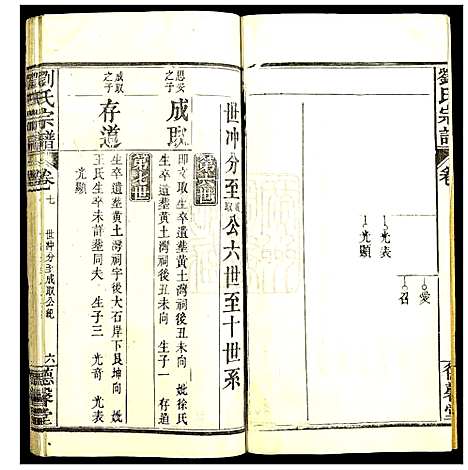 劉氏宗譜
卷
德馨堂
愛
召
光表
光顯
世冲分至成取公六世至十世系
第六世
思安之子
成取
即文取生卒遺塟黄土灣祠後丑未向 妣徐氏
生卒遺塟黄土灣祠後丑未向 生子一 存道
第七世
成取之子
存道
生卒遺塟黄土灣祠宇後大石岸下艮坤向 妣
王氏生卒未詳塟同夫 生子三 光奇 光表
光顯
劉氏宗譜
卷七
世冲分至成取公統
六
德馨堂